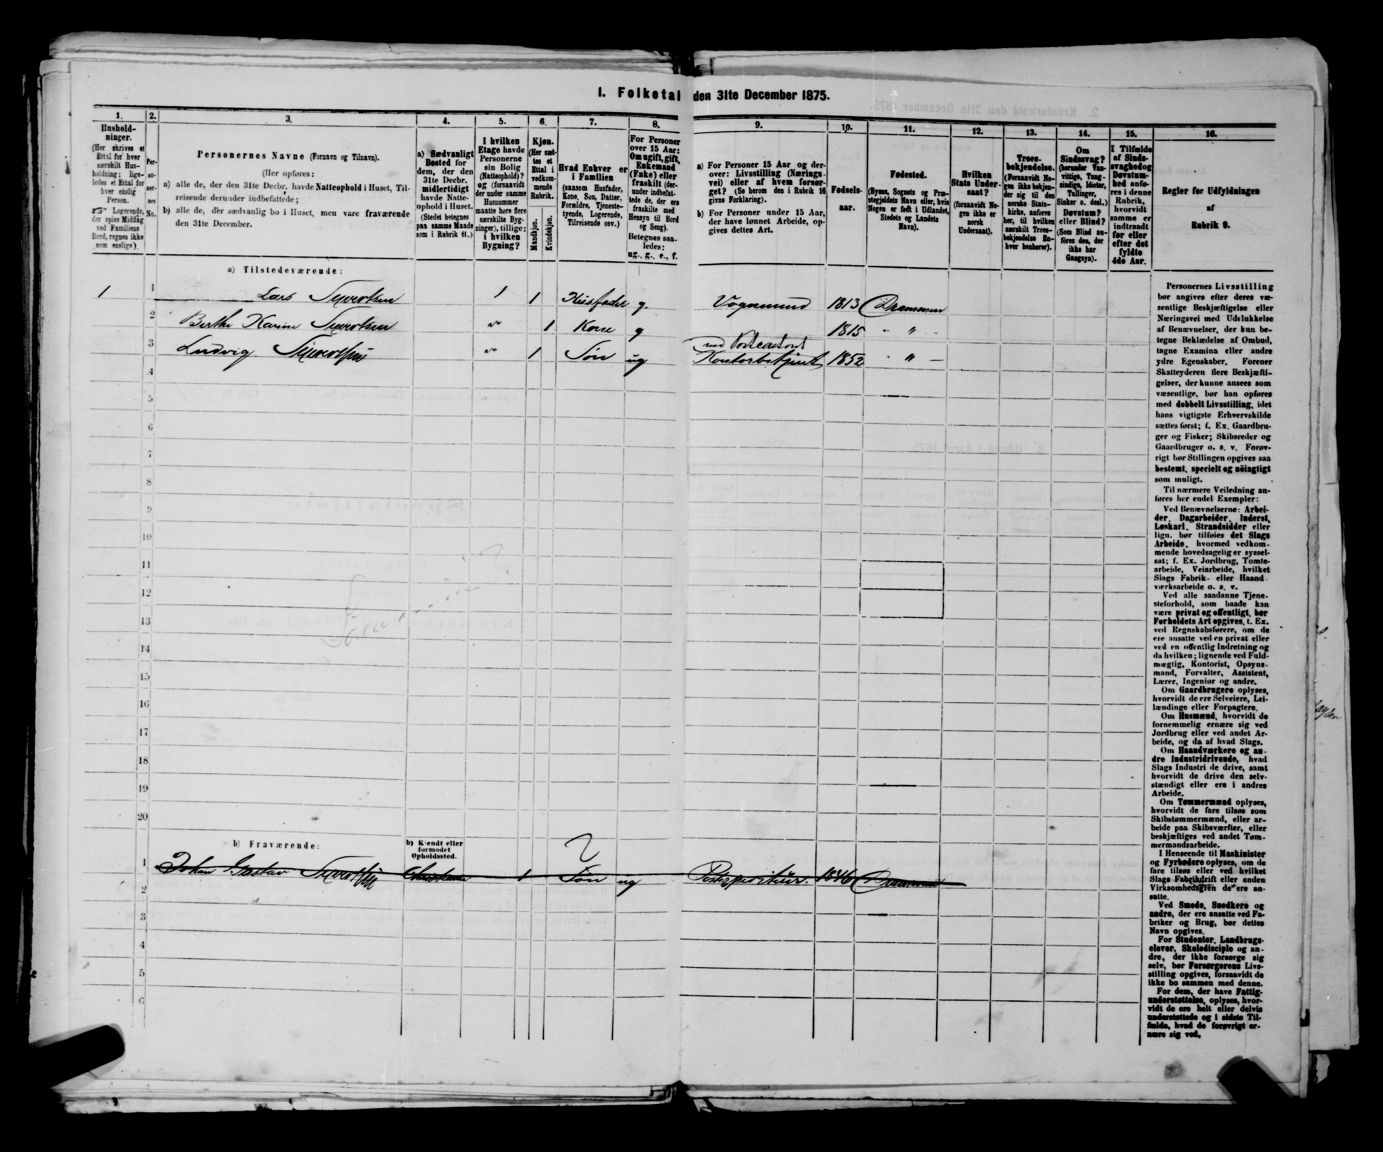 1. Folketal den 31te December 1875.
1. 2. 3. 4. 5. 6. 7. 8. 9. 10. 11. 12. 13. 14. 15. 16.
Hushold-
ninger.
(Her skrives et
Ettal for hver
særskilt Hus-
holdning; lige-
ledes et Ettal for
hver enslig
Person.
Logerende,
der spise Middag
ved Familiens
Bord, regnes ikke
som enslige).
Per-
so-
ner-
nes
No.
Personernes Navne (Fornavn og Tilnavn).
(Her opføres:
a) alle de, der den 31te Decbr. havde Natteophold i Huset, Til-
reisende derunder indbefattede;
b) alle de, der sædvanlig bo i Huset, men vare fraværende
den 31te December.
a) Sædvanligt
Bosted for
dem, der den
31te Decbr.
midlertidigt
havde Natte-
ophold i Huset.
(Stedet betegnes
paa samme Maade
som i Rubrik 11.)
I hvilken
Etage havde
Personerne
sin Bolig
(Natteophold)?
og (forsaavidt
der under samme
Husnummer
maatte høre flere
særskilte Byg-
ninger), tillige:
i hvilken
Bygning?
Kjøn.
(Her sæt-
tes et
Ettal i
vedkom-
mende
Rubrik.
Mandkjøn.
Kvindekjøn.
Hvad Enhver er
i Familien
(saasom Husfader,
Kone, Søn, Datter,
Forældre, Tjeneste-
tyende, Logerende,
Tilreisende osv.)
For Personer
over 15 Aar:
Om ugift, gift,
Enkemand
(Enke) eller
fraskilt (der-
under indbefat-
tede de, der ere
fraskilte med
Hensyn til Bord
og Seng).
Betegnes saa-
ledes:
ug., g., e., f.
a) For Personer 15 Aar og der-
over: Livsstilling (Nærings-
vei) eller af hvem forsør-
get? (Se herom den i Rubrik 16
givne Forklaring).
b) For Personer under 15 Aar,
der have lønnet Arbeide, op-
gives dettes Art.
Fødsels-
aar.
Fødested.
(Byens, Sognets og Præ-
stegjeldets Navn eller, hvis
Nogen er født i Udlandet,
Stedets og Landets
Navn).
Hvilken
Stats Under-
saat?
(forsaavidt No-
gen ikke er
norsk
Undersaat).
Troes-
bekjendelse.
(Forsaavidt No-
gen ikke bekjen-
der sig til den
norske Stats-
kirke, anføres
her, til hvilken
særskilt Troes-
bekjendelse En-
hver henhører).
Om
Sindssvag?
(herunder Van-
vittige, Tung-
sindige, Idioter,
Tullinger,
Sinker o. desl.)
Døvstum?
eller Blind?
(Som Blind an-
føres den, der
ikke har
Gangsyn).
I Tilfælde
af Sinds-
svaghed og
Døvstum-
hed anfø-
res i denne
Rubrik,
hvorvidt
samme er
indtraadt
før eller
efter det
fyldte
4de Aar.
Regler for Udfyldningen
af
Rubrik 9.
a) Tilstedeværende:
1 1 Lars Syvertsen 1 1 Husfader g. Vognmand 1813 Drammen
2 Berthe Karine Syvertsen " 1 Kone g 1815 - " -
3 Ludvig Syvertsen " 1 Søn ug Kontorbetjent 1852 - " -
4
5
6
7
8
9
10
11
12
13
14
15
16
17
18
19
20
b) Fraværende:
b) Kjendt eller
formodet
Opholdssted.
1 Johan Gustav Syvertsen Christiania 1 Søn ug 1846 Drammen
2
3
4
5
6
Personernes Livsstilling
bør angives efter deres væ-
sentlige Beskjæftigelse eller
Næringsvei med Udelukkelse
af Benævnelser, der kun be-
tegne Beklædelse af Ombud,
tagne Examina eller andre
ydre Egenskaber. Forener
Skatteyderen flere Beskjæfti-
gelser, der kunne ansees som
væsentlige, bør han opføres
med dobbelt Livsstilling, idet
hans vigtigste Erhvervskilde
sættes først; f. Ex. Gaardbru-
ger og Fisker; Skibsreder og
Gaardbruger o. s. v. Forøv-
rigt bør Stillingen opgives saa
bestemt, specielt og nøiagtigt
som muligt.
Til nærmere Veiledning an-
føres her endel Exempler:
Ved Benævnelserne: Arbei-
der, Dagarbeider, Inderst,
Løskarl, Strandsidder eller
lign. bør tilføies det Slags
Arbeide, hvormed vedkom-
mende hovedsagelig er syssel-
sat; f. Ex. Jordbrug, Tomte-
arbeide, Veiarbeide, hvilket
Slags Fabrik- eller Haand-
værksarbeide o. s. v.
Ved alle saadanne Tjene-
steforhold, som baade kan
være privat og offentligt, bør
Forholdets Art opgives, t. Ex.
ved Regnskabsførere, om de
ere ansatte ved en privat eller
ved en offentlig Indretning og
da hvilken; lignende ved Fuld-
mægtig, Kontorist, Opsyns-
mand, Forvalter, Assistent,
Lærer, Ingeniør og andre.
Om Gaardbrugere oplyses,
hvorvidt de ere Selveiere, Lei-
lændinge eller Forpagtere.
Om Husmænd, hvorvidt de
fornemmelig ernære sig ved
Jordbrug eller ved andet Ar-
beide, og da af hvad Slags.
Om Haandværkere og an-
dre Industridrivende, hvad
Slags Industri de drive, samt
hvorvidt de drive den selv-
stændigt eller ere i andres
Arbeide.
Om Tømmermænd oplyses,
hvorvidt de fare tilsøs som
Skibstømmermænd, eller ar-
beide paa Skibsværfter, eller
beskjæftiges ved andet Tøm-
mermandsarbeide.
I Henseende til Maskinister
og Fyrbødere oplyses, om de
fare tilsøs eller ved hvilket
Slags Fabrikdrift eller anden
Virksomhedsgren de ere an-
satte.
Ved Smede, Snedkere og
andre, der ere ansatte ved Fa-
briker og Brug, bør dettes
Navn opgives.
For Studenter, Landbrugs-
elever, Skoledisciple og an-
dre, der ikke forsørge sig
selv, bør Forsørgerens Livs-
stilling opgives, forsaavidt de
ikke bo sammen med denne.
For dem, der have Fattig-
understøttelse, oplyses, hvor-
vidt de ere helt eller delvis
understøttede og i sidste Til-
fælde, hvad de forøvrigt er-
nære sig ved.